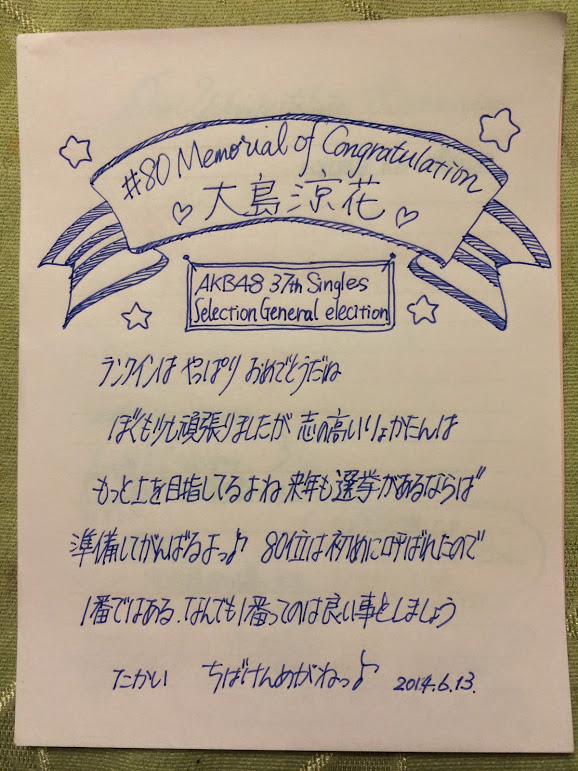 #80 Memorial of Congratulation
♡ 大島涼花 ♡
AKB48 37th Singles
Selection General elecition
ランクインは やっぱり おめでとうだね
ぼくも少し頑張りましたが 志の高いりょかたんは
もっと上を目指してるよね 来年も選挙があるならば
準備してがんばるよっ♪ 80位は初めに呼ばれたので
1番ではある、なんでも1番ってのは良い事としましょう
たかい ちばけんめがねっ♪ 2014.6.13.